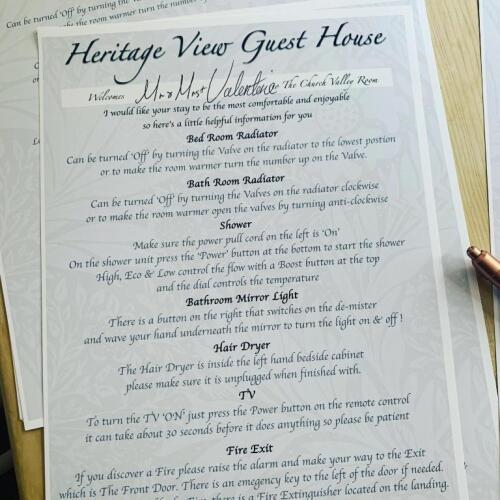 Can be turned 'Off' by turning the
the room warmer turn
Heritage View Guest House
Welcomes Mr & Mrs Valentine The Church Valley Room
I would like your stay to be the most comfortable and enjoyable
so here's a little helpful information for you
Bed Room Radiator
Can be turned 'Off' by turning the Valve on the radiator to the lowest postion
or to make the room warmer turn the number up on the Valve.
Bath Room Radiator
Can be turned 'Off' by turning the Valves on the radiator clockwise
or to make the room warmer open the valves by turning anti-clockwise
Shower
Make sure the power pull cord on the left is 'On'
On the shower unit press the 'Power' button at the bottom to start the shower
High, Eco & Low control the flow with a Boost button at the top
and the dial controls the temperature
Bathroom Mirror Light
There is a button on the right that switches on the de-mister
and wave your hand underneath the mirror to turn the light on & off !
Hair Dryer
The Hair Dryer is inside the left hand bedside cabinet
please make sure it is unplugged when finished with.
TV
To turn the TV 'ON' just press the Power button on the remote control
it can take about 30 seconds before it does anything so please be patient
Fire Exit
If you discover a Fire please raise the alarm and make your way to the Exit
which is The Front Door. There is an emegency key to the left of the door if needed.
there is a Fire Extinguisher located on the landing.